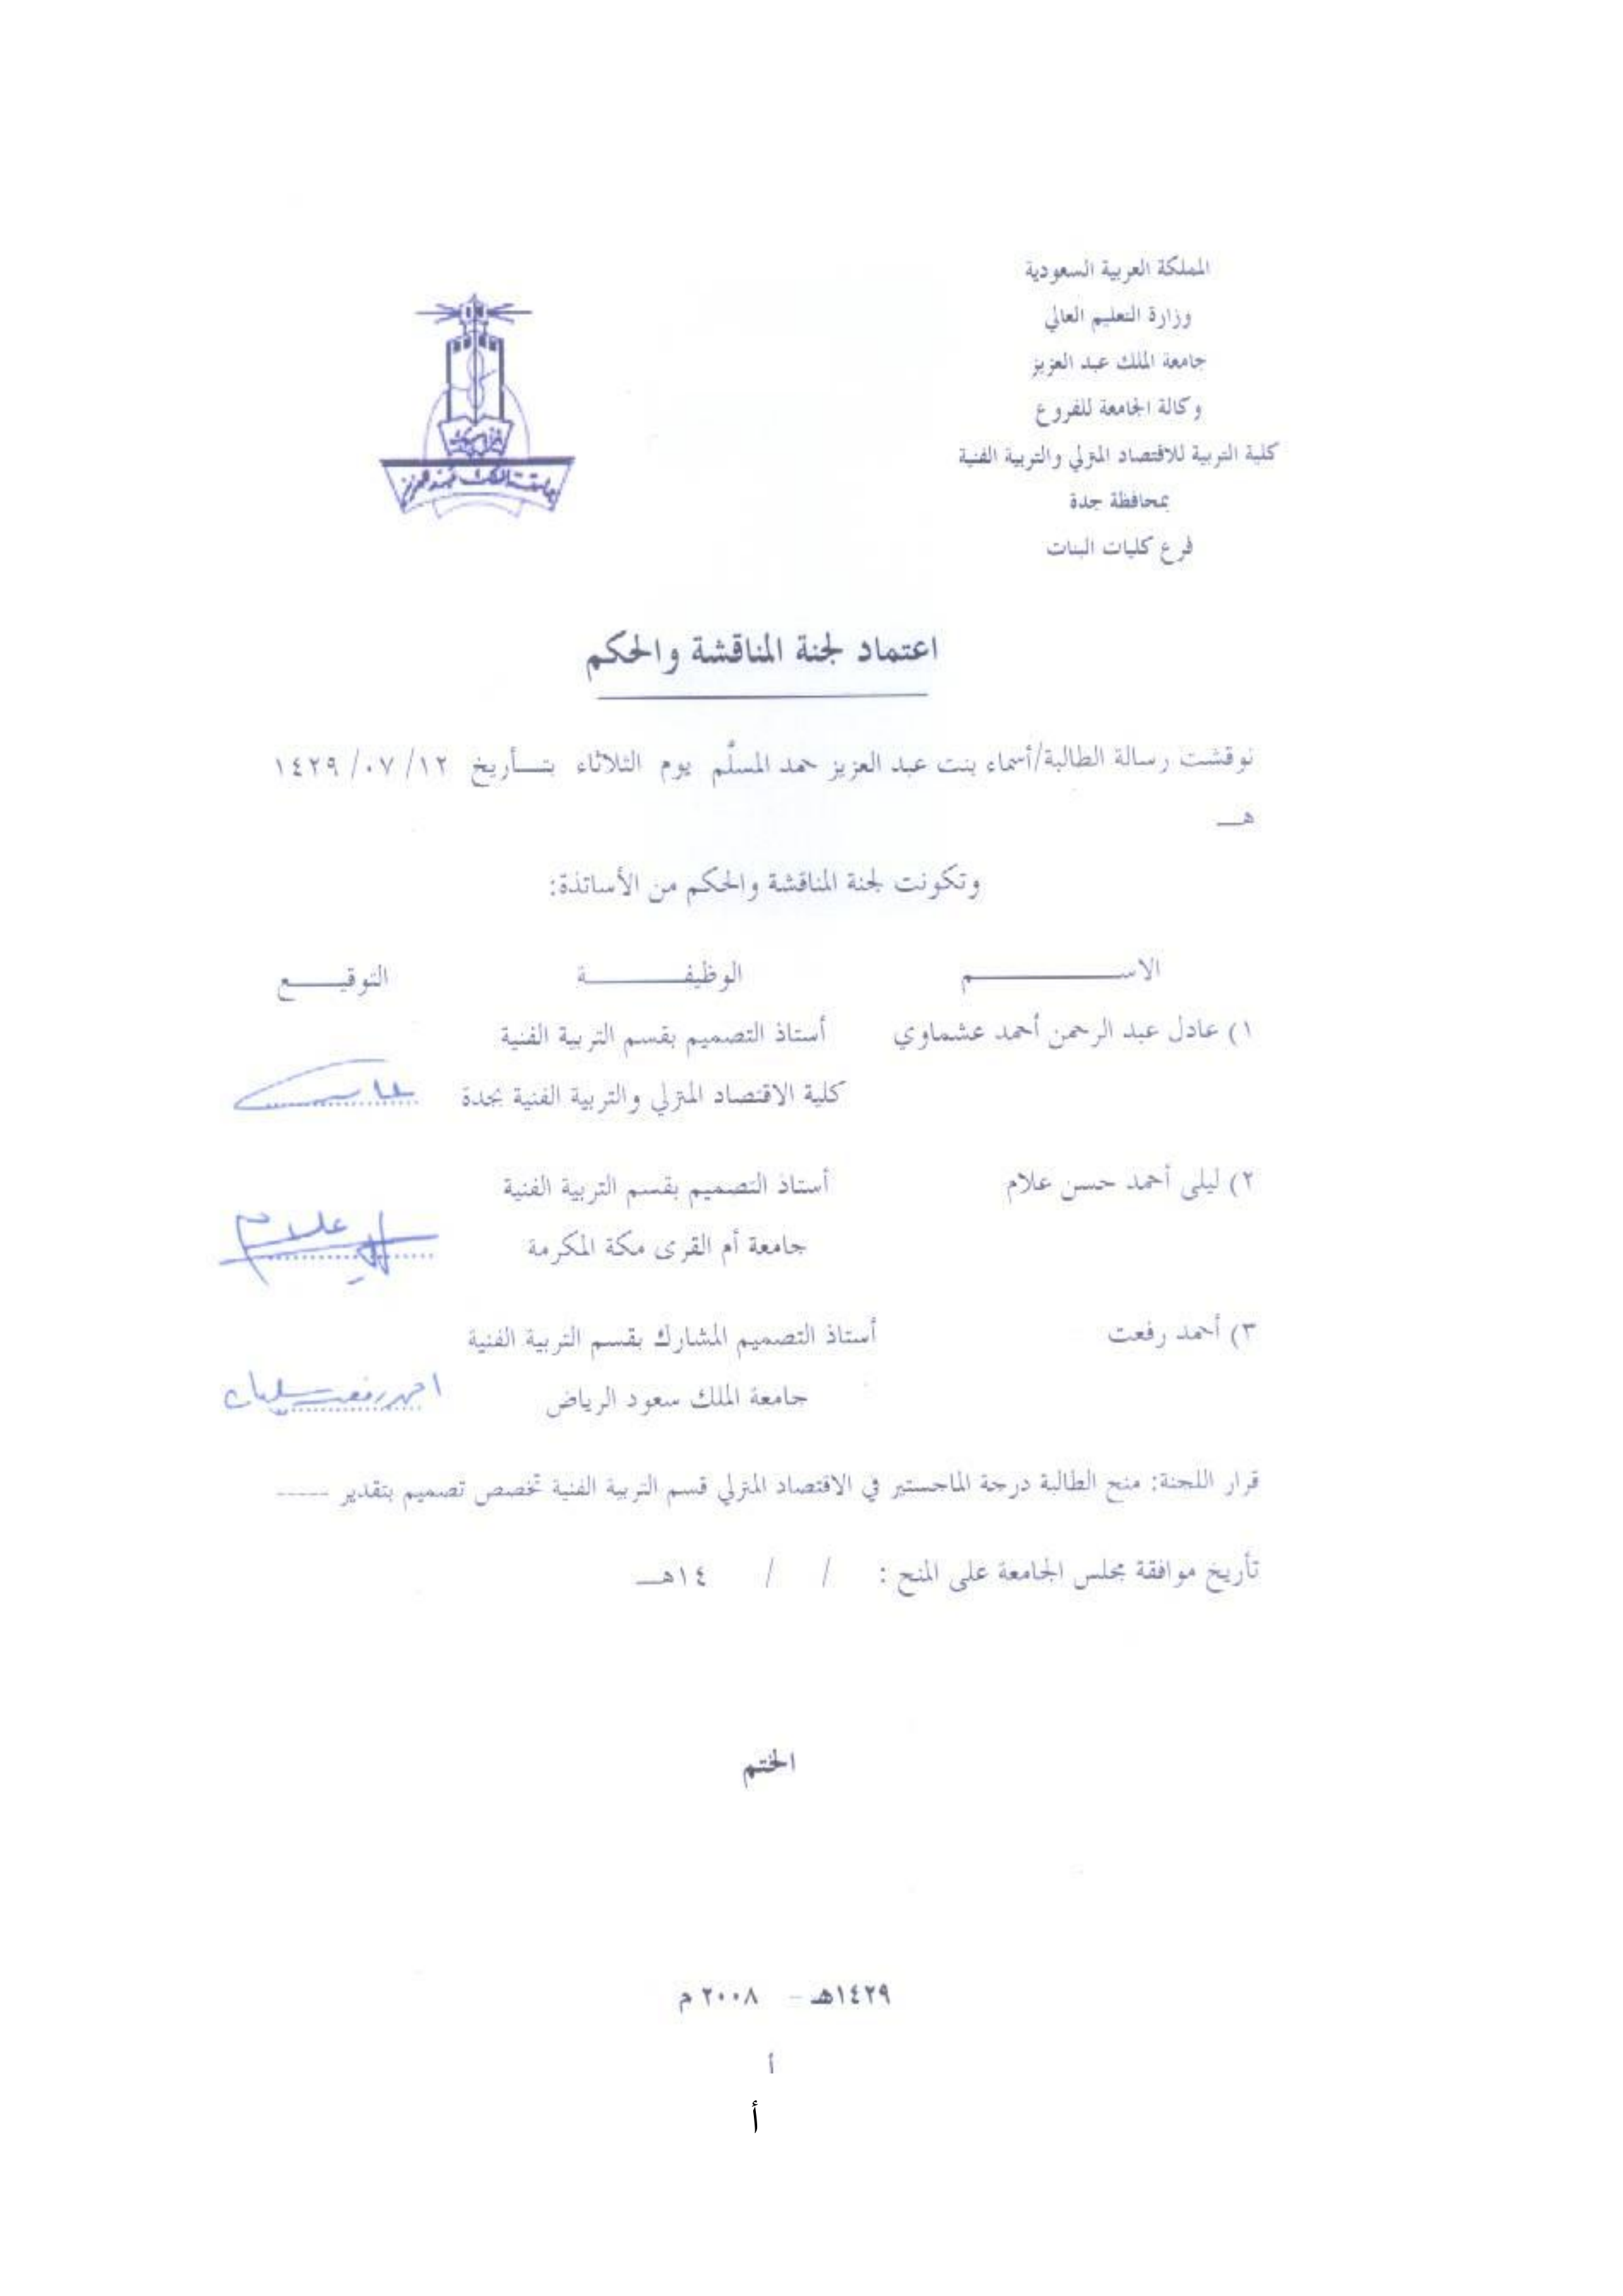 المملكة العربية السعودية
وزارة التعليم العالي
جامعة الملك عبد العزيز
وكالة الجامعة للفروع
كلية التربية للاقتصاد المنزلي والتربية الفنية
بمحافظة جدة
فرع كليات البنات
جامعة الملك عبد العزيز
اعتماد لجنة المناقشة والحكم
نوقشت رسالة الطالبة/أسماء بنت عبد العزيز حمد المسلَّم يوم الثلاثاء بتـأريخ ١٢/ ٠٧/ ١٤٢٩
هـ
وتكونت لجنة المناقشة والحكم من الأساتذة:
الاســـــــــم الوظيفـــــــة التوقيـــع
١) عادل عبد الرحمن أحمد عشماوي أستاذ التصميم بقسم التربية الفنية
كلية الاقتصاد المنزلي والتربية الفنية بجدة
٢) ليلى أحمد حسن علام أستاذ التصميم بقسم التربية الفنية
جامعة أم القرى مكة المكرمة علام
٣) أحمد رفعت أستاذ التصميم المشارك بقسم التربية الفنية
جامعة الملك سعود الرياض احمد رفعت سليمان
قرار اللجنة: منح الطالبة درجة الماجستير في الاقتصاد المنزلي قسم التربية الفنية تخصص تصميم بتقدير -----
تأريخ موافقة مجلس الجامعة على المنح : / / ١٤هـ
الختم
١٤٢٩هـ - ٢٠٠٨ م
أ
أ